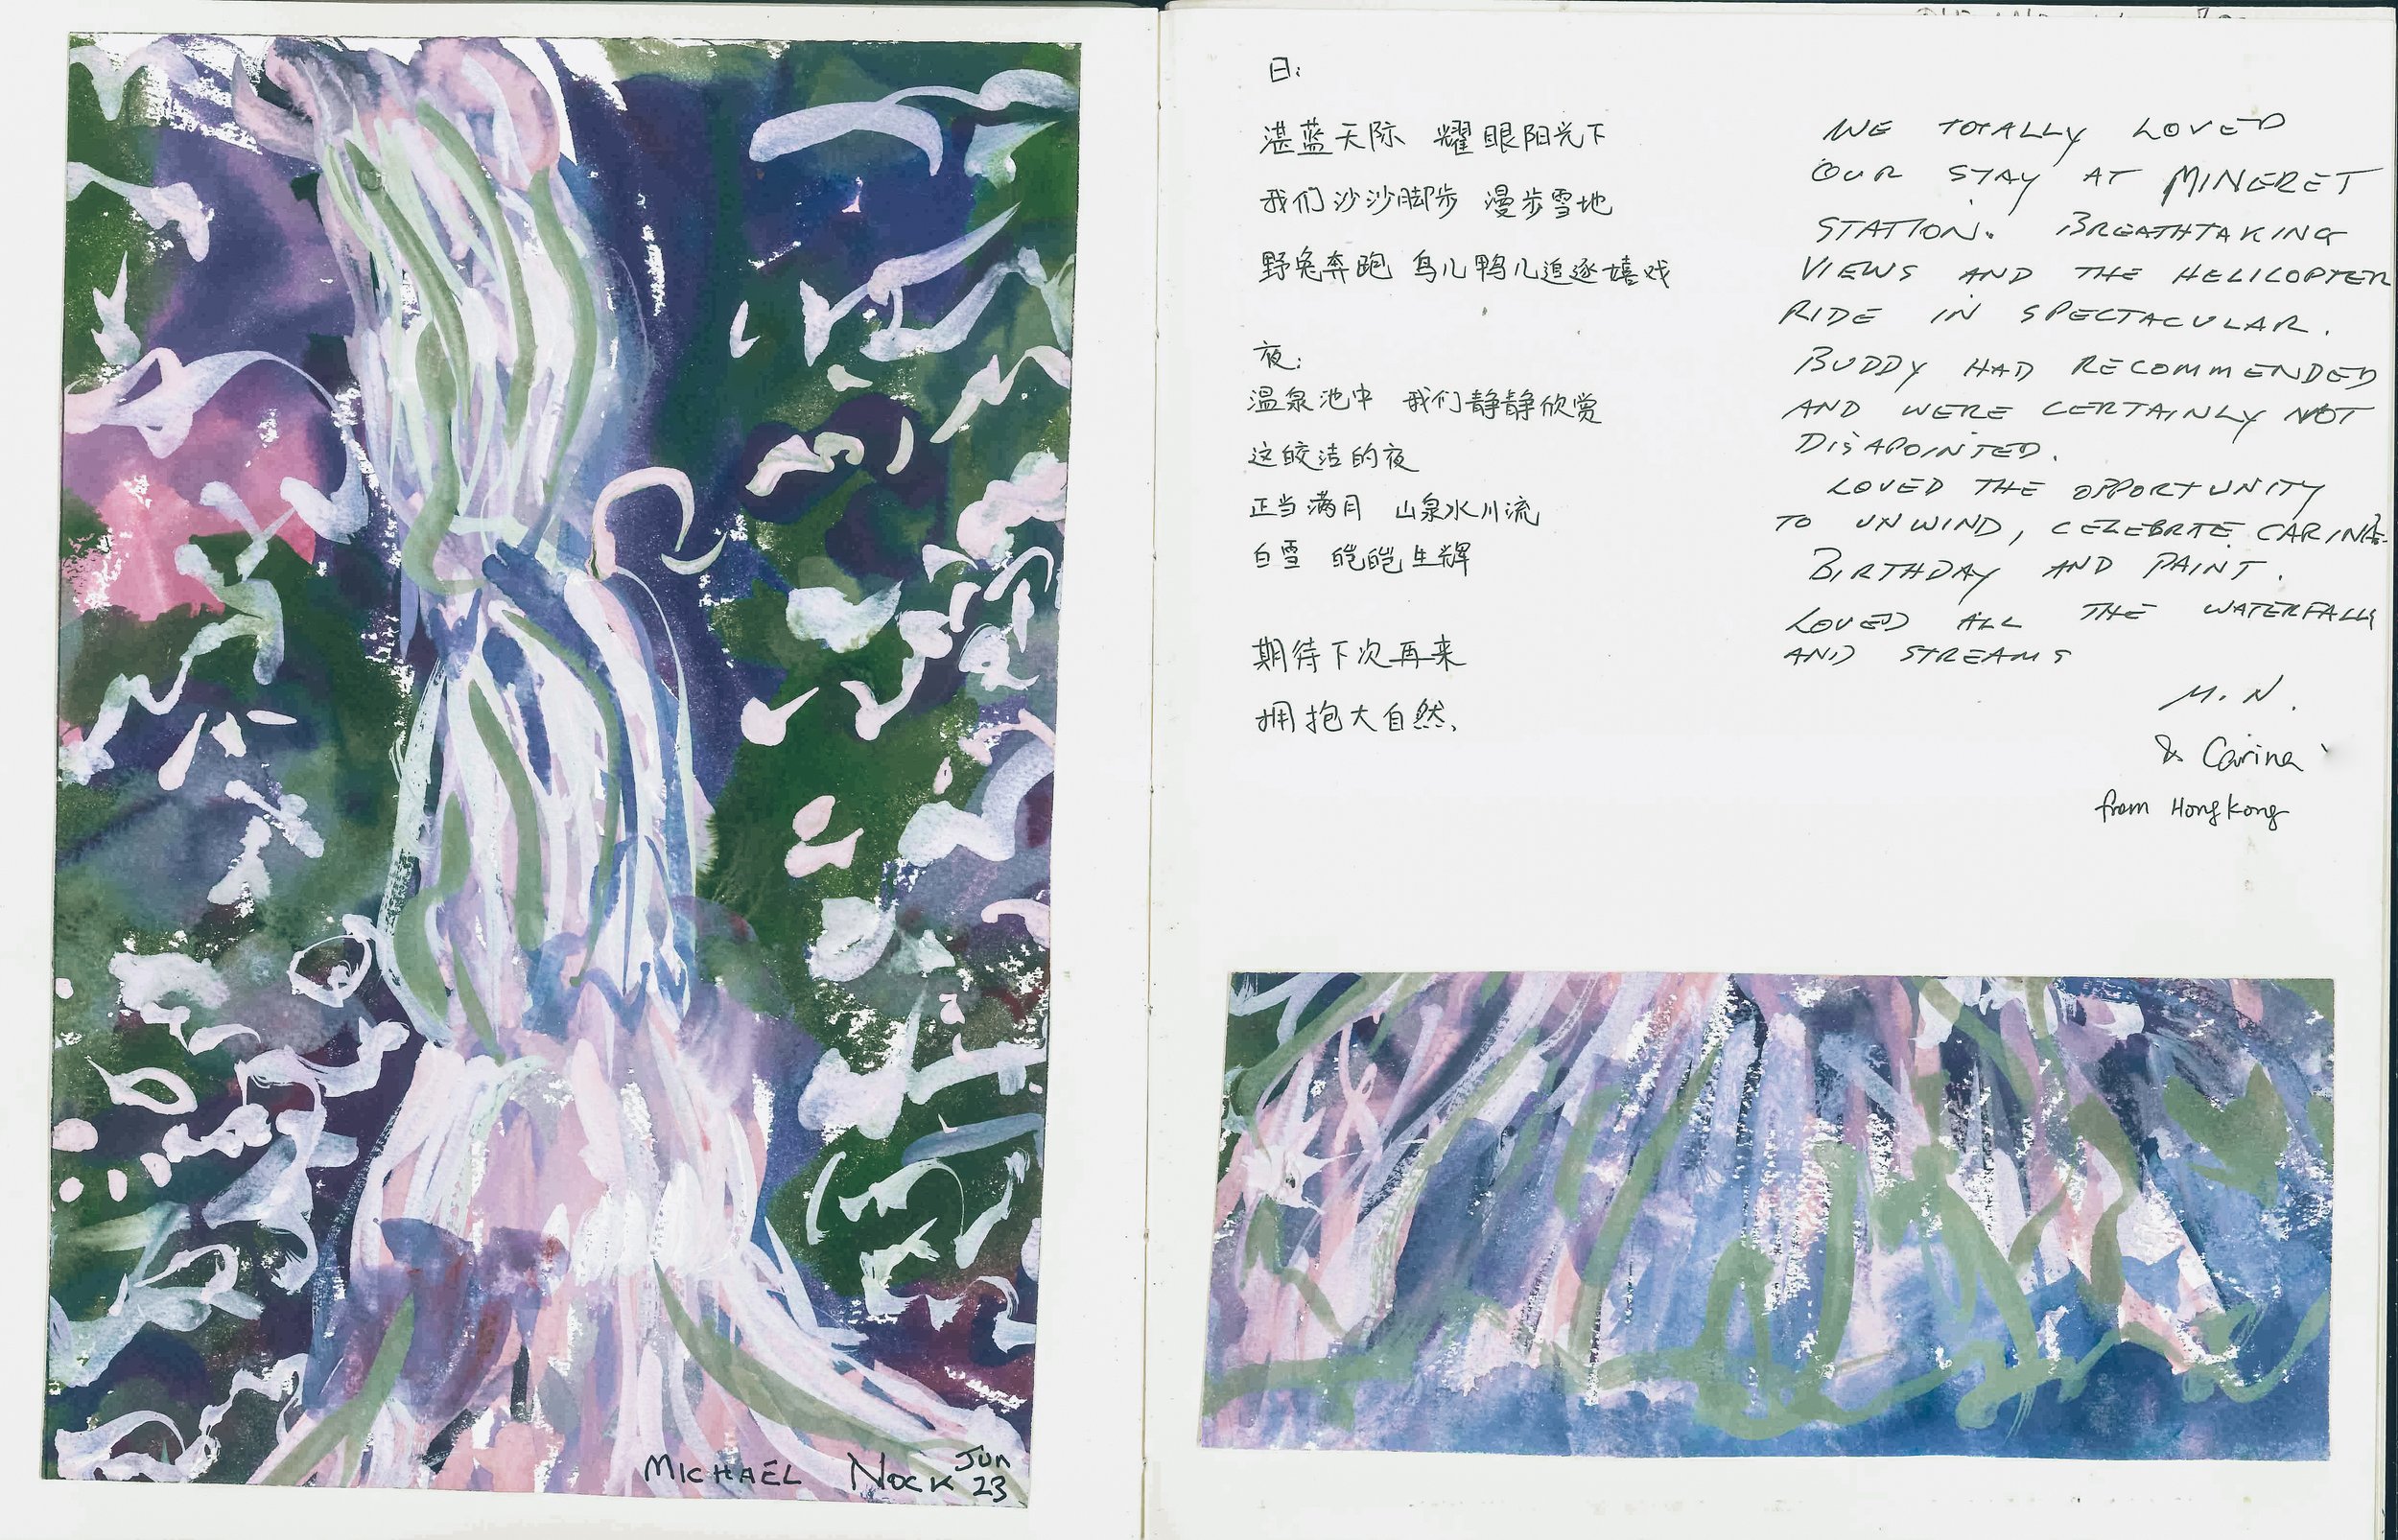 MICHAEL NOCK JUN
23
日:
湛蓝天际 耀眼阳光下
我们沙沙脚步 漫步雪地
野兔奔跑 鸟儿鸭儿追逐嬉戏
夜:
温泉池中 我们静静欣赏
这皎洁的夜
正当满月 山泉水川流
白雪 皑皑生辉
期待下次再来
拥抱大自然.
WE TOTALLY LOVED
OUR STAY AT MINERET
STATION. BREATHTAKING
VIEWS AND THE HELICOPTER
RIDE IN SPECTACULAR.
BUDDY HAD RECOMMENDED
AND WERE CERTAINLY NOT
DISAPOINTED.
LOVED THE OPPORTUNITY
TO UNWIND, CELEBRTE
BIRTHDAY AND PAINT.
LOVED ALL THE WATERFALLS
AND STREAMS
M.N.
& Carina
from Hong Kong